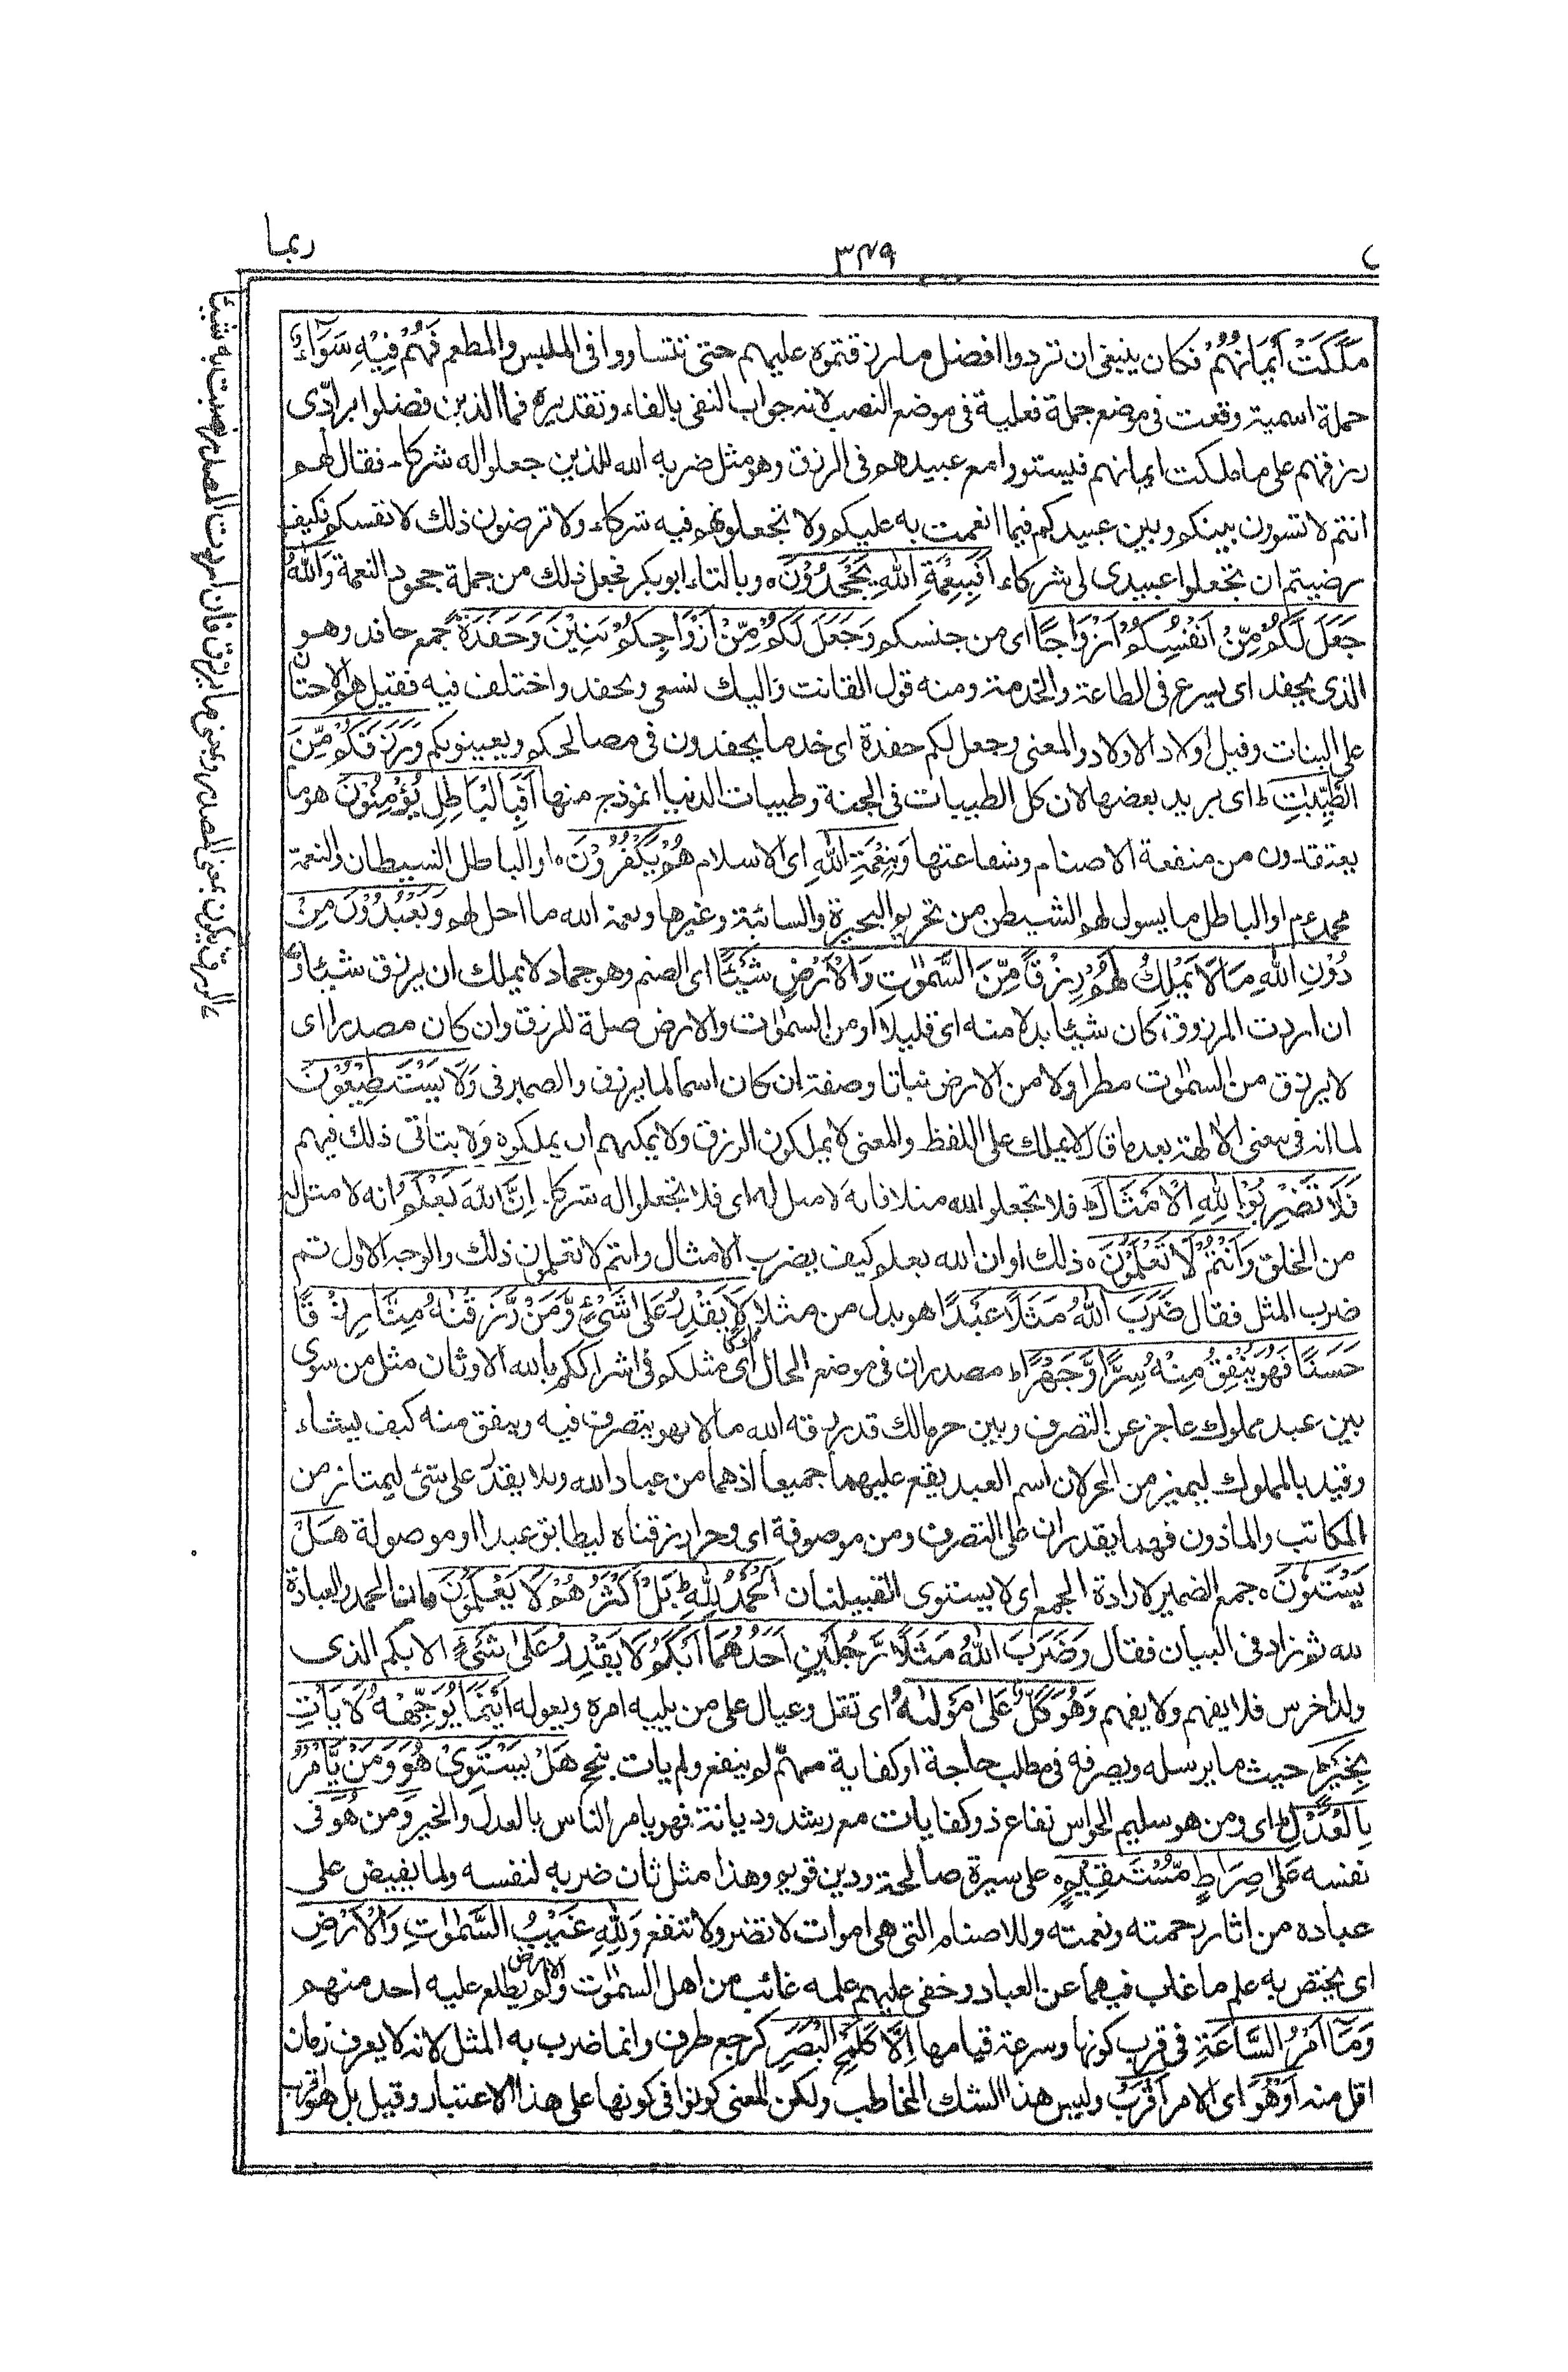 ربما
٣٤٩
مَلَكَتْ أَيْمَانُهُمْ فكان ينبغى ان تردوا افضل ما رزقتموه عليهم حتى تتساووا فى الملبس والمطعم فَهُمْ فِيْهِ سَوَآءٌ
جملة اسمية وقعت فى موضع جملة فعلية فى موضع النصب لانه جواب النفى بالفاء وتقديره فما الذين فضلوا برادّى
رزقهم على ما ملكت ايمانهم فيستووا مع عبيدهم فى الرزق وهو مثل ضربه الله للذين جعلوا له شركاء فقال لهم
انتم لا تسوون بينكم وبين عبيدكم فيما انعمت به عليكم ولا تجعلونهم فيه شركاء ولا ترضون ذلك لانفسكم فكيف
رضيتم ان تجعلوا عبيدى لى شركاء اَفَبِنِعْمَةِ اللهِ يَجْحَدُوْنَ ه وبالتاء ابوبكر فجعل ذلك من جملة جحود النعمة وَاللهُ
جَعَلَ لَكُمْ مِّنْ اَنْفُسِكُمْ اَزْوَاجًا اى من جنسكم وَجَعَلَ لَكُمْ مِّنْ اَزْوَاجِكُمْ بَنِيْنَ وَحَفَدَةً جمع حافد وهو
الذى يحفد اى يسرع فى الطاعة والخدمة ومنه قول القانت واليك نسعى ونحفد واختلف فيه فقيل هم الاختان
على البنات وقيل اولاد الاولاد والمعنى وجعل لكم حفدة اى خدما يحفدون فى مصالحكم ويعينونكم وَرَزَقَكُمْ مِّنَ
الطَّيِّبٰتِ ط اى بريد بعضها لان كل الطيبات فى الجنة وطيبات الدنيا انموذج منها اَفَبِالْبَاطِلِ يُؤْمِنُوْنَ هو ما
يعتقدون من منفعة الاصنام وشفاعتها وَبِنِعْمَةِ اللهِ اى الاسلام هُمْ يَكْفُرُوْنَ ه او الباطل الشيطان والنعمة
محمد عم او الباطل ما يسول لهم الشيطن من تحريم البحيرة والسائبة وغيرها ونعمة الله ما احل لهم وَيَعْبُدُوْنَ مِنْ
دُوْنِ اللهِ مَا لَا يَمْلِكُ لَهُمْ رِزْقًا مِّنَ السَّمٰوٰتِ وَالْاَرْضِ شَيْئًا اى الصنم وهو جماد لا يملك ان يرزق شيئا و
ان اردت المرزوق كان شيئا بدلا منه اى قليلا او من السمٰوٰت والارض صلة للرزق وان كان مصدرا اى
لا يرزق من السمٰوٰت مطرا ولا من الارض نباتا وصفة ان كان اسما لما يرزق والضمير فى وَلَا يَسْتَطِيْعُوْنَ
لما انه فى معنى الاٰلهة بعد ما قال لا يملك على اللفظ والمعنى لا يملكون الرزق ولا يمكنهم ان يملكوه ولا يتاتى ذلك فيهم
فَلَا تَضْرِبُوْا لِلّٰهِ الْاَمْثَالَ ط فلا تجعلوا الله مثلا فانه لا مثل له اى فلا تجعلوا له شركاء اِنَّ اللهَ يَعْلَمُ انه لا مثل له
من الخلق وَاَنْتُمْ لَا تَعْلَمُوْنَ ه ذلك او ان الله يعلم كيف يضرب الامثال وانتم لا تعلمون ذلك والوجه الاول ثم
ضرب المثل فقال ضَرَبَ اللهُ مَثَلًا عَبْدًا هو بدل من مثلا لَا يَقْدِرُ عَلٰى شَيْءٍ وَّمَنْ رَّزَقْنٰهُ مِنَّا رِزْقًا
حَسَنًا فَهُوَ يُنْفِقُ مِنْهُ سِرًّا وَّجَهْرًا ط مصدران فى موضع الحال اى مثلكم فى اشراككم بالله الاوثان مثل من سوى
بين عبد مملوك عاجز عن التصرف وبين حر مالك قد رزقه الله مالا فهو يتصرف فيه وينفق منه كيف يشاء
وقيد بالمملوك ليميز من الحر لان اسم العبد يقع عليهما جميعا اذ هما من عباد الله وبلا يقدر على شئ ليمتاز من
المكاتب والماذون فهما يقدران على التصرف ومن موصوفة اى وحرا رزقناه ليطابق عبدا او موصولة هَلْ
يَسْتَوٗنَ ه جمع الضمير لارادة الجمع اى لا يستوى القبيلتان اَلْحَمْدُ لِلّٰهِ ط بَلْ اَكْثَرُهُمْ لَا يَعْلَمُوْنَ ه بان الحمد والعبادة
لله ثم زاد فى البيان فقال وَضَرَبَ اللهُ مَثَلًا رَّجُلَيْنِ اَحَدُهُمَا اَبْكَمُ لَا يَقْدِرُ عَلٰى شَيْءٍ الابكم الذى
ولد اخرس فلا يفهم ولا يفهم وَهُوَ كَلٌّ عَلٰى مَوْلٰىهُ اى ثقل وعيال على من يليه امره ويعوله اَيْنَمَا يُوَجِّهْهُ لَا يَاْتِ
بِخَيْرٍ ط حيث ما يرسله ويصرفه فى مطلب حاجة او كفاية مهمّ لم ينفع ولم يات بنجح هَلْ يَسْتَوِيْ هُوَ وَمَنْ يَّاْمُرُ
بِالْعَدْلِ ط اى ومن هو سليم الحواس نفاع ذو كفايات مع رشد وديانة فهو يامر الناس بالعدل والخير ومن هُوَ فى
نفسه عَلٰى صِرَاطٍ مُّسْتَقِيْمٍ ه على سيرة صالحة ودين قويم وهذا مثل ثان ضربه لنفسه ولما يفيض على
عباده من اثار رحمته ونعمته وللاصنام التى هى اموات لا تضر ولا تنفع وَلِلّٰهِ غَيْبُ السَّمٰوٰتِ وَالْاَرْضِ
اى يختص به علم ما غاب فيهما عن العباد وخفى عليهم علمه غائب من اهل السمٰوٰت والارض ولم يطلع عليه احد منهم
وَمَا اَمْرُ السَّاعَةِ فى قرب كونها وسرعة قيامها اِلَّا كَلَمْحِ الْبَصَرِ كرجع طرف وانما ضرب به المثل لانه لا يعرف زمان
اقل منه اَوْ هُوَ اى الامر اَقْرَبُ وليس هذا الشك المخاطب ولكن المعنى كونوا فى كونها على هذا الاعتبار وقيل بل هو اقرب